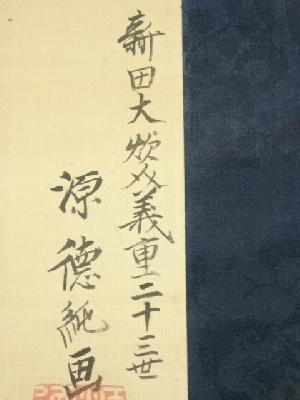 新田大炊助義重二十三世
源徳純画